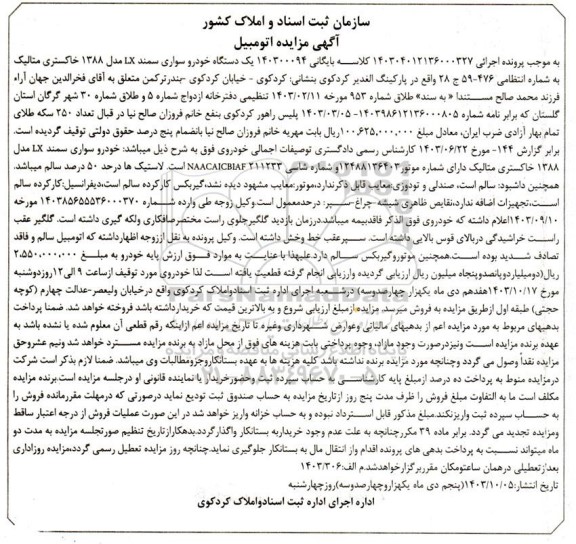 سازمان ثبت اسناد و املاک کشور
آگهی مزایده اتومبیل
به موجب پرونده اجرائی ۱۴۰۳۰۴۰۱۲۱۳۶۰۰۰۳۲۷ کلاسه بایگانی ۱۴۰۳۰۰۰۹۴ یک دستگاه خودرو سواری سمند LX مدل ۱۳۸۸ خاکستری متالیک
به شماره انتظامی ۴۷۶-۵۹ ج ۲۸ واقع در پارکینگ الغدیر کردکوی بنشانی: کردکوی - خیابان کردکوی -بندرترکمن متعلق به آقای فخرالدین جهان آراء
فرزند محمد صالح مستندا « به سند» طلاق شماره ۹۵۳ مورخه ۱۴۰۳/۰۲/۱۱ تنظیمی دفترخانه ازدواج شماره ۵ و طلاق شماره ۳۰ شهر گرگان استان
گلستان که برابر نامه شماره ۱۴۰۳۹۸۶۱۲۱۳۶۰۰۰۸۰۵- ۱۴۰۳/۰۳/۰۵ پلیس راهور کردکوی بنفع خانم فروزان صالح نیا در قبال تعداد ۲۵۰ سکه طلای
تمام بهار آزادی ضرب ایران، معادل مبلغ ۱۰۰,۶۲۵,۰۰۰,۰۰۰ریال بابت مهریه خانم فروزان صالح نیا بانضمام پنج درصد حقوق دولتی توقیف گردیده است.
برابر گزارش ۱۴۴- مورخ ۱۴۰۳/۰۶/۲۲ کارشناس رسمی دادگستری توصیفات اجمالی خودروی فوق به شرح ذیل میباشد: خودرو سواری سمند LX مدل
۱۳۸۸ خاکستری متالیک دارای شماره موتور۱۲۴۸۸۱۳۶۴۰۳وشماره شاسی NAACAICBIAF ۲۱۱۲۳۳ است. لاستیک ها درحد ۵۰ درصد سالم میباشد.
همچنین داشبود: سالم است، صندلی و تودوزی:معایب قابل ذکرندارد،موتور:معایب مشهود دیده نشد،گیربکس کارکرده سالم است،دیفرانسیل:کارکرده سالم
است،تجهیزات اضافه ندارد،نقایص ظاهری شیشه چراغ-سپر: درحدمعمول است وکیل زوجه طی وارده شماره ۱۴۰۳۸۵۶۵۵۵۳۶۰۰۰۳۷۰ مورخ
۱۴۰۳/۰۹/۱۰اعلام داشته که خودروی فوق الذکر فاقدبیمه میباشد.درزمان بازدید گلگیرجلوی راست مختصرصافکاری ولکه گیری داشته است. گلگیر عقب
راست خراشیدگی دربالای قوس بالایی داشته است. سپرعقب خط وخش داشته است. وکیل پرونده به نقل اززوجه اظهارداشته که اتومبیل سالم و فاقد
تصادف شدید بوده است.همچنین موتوروگیربکس سالم دارد علیهذا با عنایت به موارد فوق ارزش پایه خودرو به مبلغ ۲,۵۵۰,۰۰۰,۰۰۰
ریال(دومیلیاردوپانصدوپنجاه میلیون ریال ارزیابی گردیده وارزیابی انجام گرفته قطعیت یافته است لذا خودروی مورد توقیف ازساعت ۹ الی۱۲روزدوشنبه
مورخ ۱۴۰۳/۱۰/۱۷هفدهم دی ماه یکهزار چهارصدوسه) درشعبه اجرای اداره ثبت اسنادواملاک کردکوی واقع درخیابان ولیعصر-عدالت چهارم (کوچه
حجتی) طبقه اول ازطریق مزایده به فروش میرسد. مزایده ازمبلغ ارزیابی شروع و به بالاترین قیمت که خریدارداشته باشد فروخته خواهد شد. ضمنا پرداخت
بدهیهای مربوط به مورد مزایده اعم از بدهیهای مالیاتی وعوارض شهرداری وغیره تا تاریخ مزایده اعم ازاینکه رقم قطعی آن معلوم شده یا نشده باشد به
عهده برنده مزایده است ونیزدرصورت وجود مازاد، وجوه پرداختی بابت هزینه های فوق از محل مازاد به برنده مزایده مسترد خواهد شد.ونیم عشروحق
مزایده نقداً وصول می گردد وچنانچه مورد مزایده برنده نداشته باشد کلیه هزینه ها به عهده بستانکاروجزومطالبات وی میباشد. ضمنا لازم بذکر است شرکت
درمزایده منوط به پرداخت ده درصد ازمبلغ پایه کارشناسی به حساب سپرده ثبت وحضورخریدار یا نماینده قانونی او درجلسه مزایده است.برنده مزایده
مکلف است ما به التفاوت مبلغ فروش را ظرف مدت پنج روز ازتاریخ مزایده به حساب صندوق ثبت تودیع نماید درصورتی که درمهلت مقررمانده فروش را
به حساب سپرده ثبت واریزنکند.مبلغ مذکور قابل استرداد نبوده و به حساب خزانه واریز خواهد شد در این صورت عملیات فروش از درجه اعتبار ساقط
ومزایده تجدید می گردد. برابر ماده ۳۹ مکررچنانچه به علت عدم وجود خریداربه بستانکار واگذارگردد.بدهکارازتاریخ تنظیم صورتجلسه مزایده به مدت دو
ماه میتواند نسبت به پرداخت بدهی های پرونده اقدام واز انتقال مال به بستانکار جلوگیری نماید.چنانچه روز مزایده تعطیل رسمی گردد،مزایده روزاداری
بعدازتعطیلی درهمان ساعتومکان مقرربرگزارخواهدشد.م الف:۱۴۰۳/۳۰۶
تاریخ انتشار:۱۴۰۳/۱۰/۰۵(پنجم دی ماه یکهزاروچهارصدوسه)روزچهارشنبه
اداره اجرای اداره ثبت اسنادواملاک کردکوی